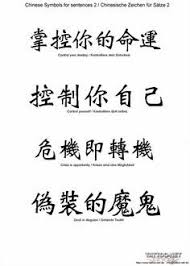 Chinese Symbols for sentences 2 / Chinesische Zeichen für Sätze 2
掌控你的命運
Control your destiny / Kontrolliere dein Schicksal
控制你自己
Control yourself / Kontrolliere dich selbst
危機即轉機
Crisis is opportunity /
偽裝的魔鬼
Devil in disguise / Getarnte Teufel
TATTOO-NET